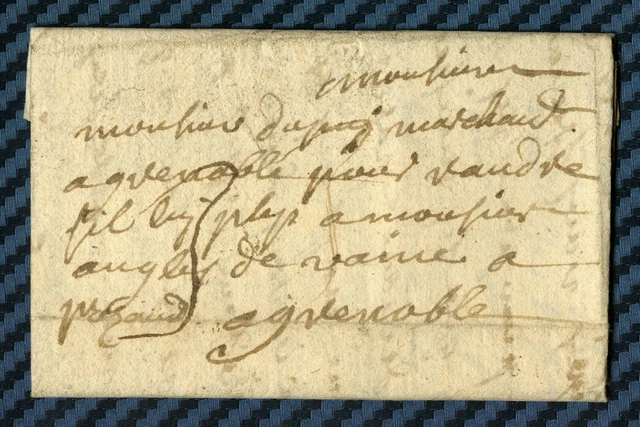 monsieur
monsieur dupuy marchand
a grenoble pour randre
sil luy plaist a monsieur
de a
a grenoble